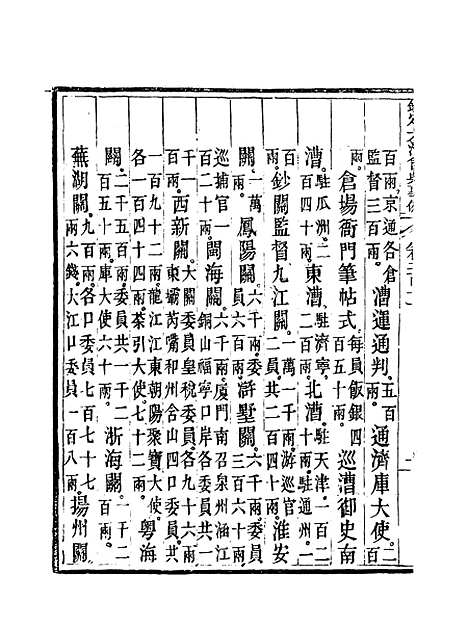 百兩京通各倉監督三百兩漕運通判五百兩通濟庫大使二百
兩倉場衙門筆帖式每員飯銀四百五十兩巡漕御史南
漕駐瓜洲二百四十兩東漕駐濟寧十兩北漕駐天津一百二十兩駐通州一
百兩鈔關監督九江關一萬一千兩游巡官二員共二四十兩淮安
關一萬兩鳳陽關六千兩委員六百兩滸墅關六千兩委員三百六十兩
巡捕官一百二十兩閩海關六千兩廈門南召泉州涵江銅山福寧口岸各委員共一
千一百兩西新關大關委員皇稅委員各九十六兩東壩芮嘴和州合山四口委員共
一百九十二兩龍江江東朝陽聚寶大使各一百四十四兩茶引大使七十二兩粵海
關二千五百兩委員共一千二百五十兩庫大使六十兩浙海關一千二百兩
蕪湖關九百兩各口委員七百七十七兩六錢大江口委員一百八兩揚州關